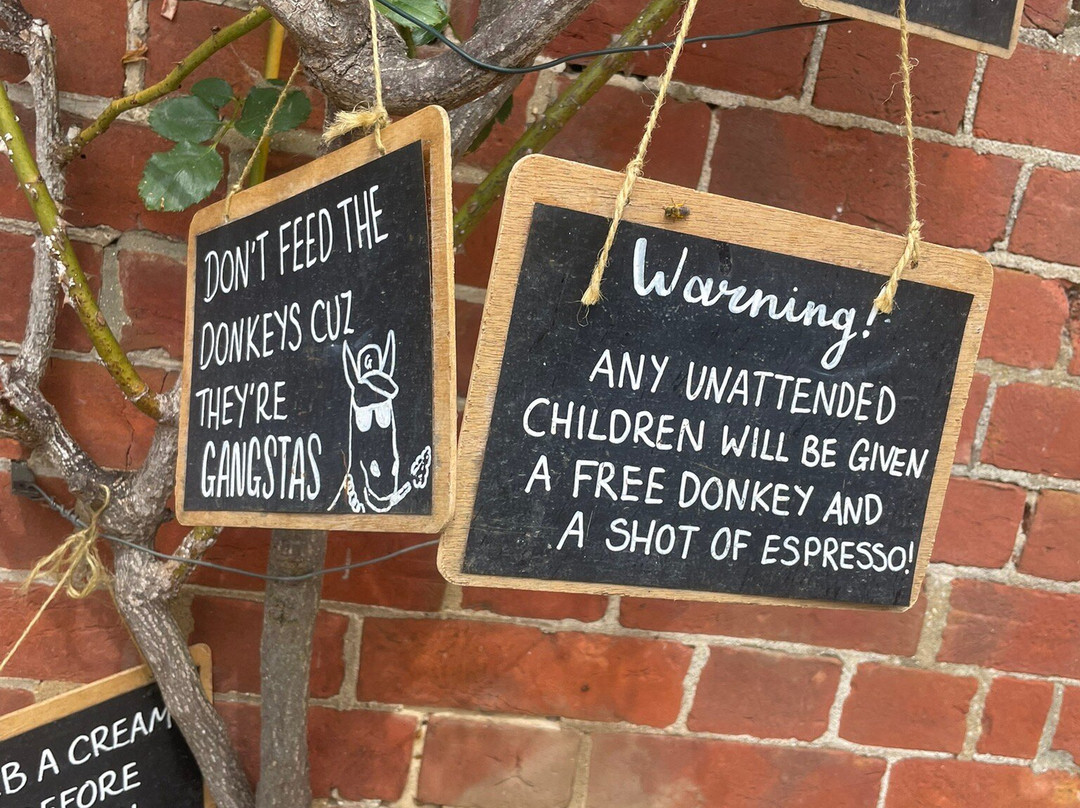 DON'T FEED THE
DONKEYS CUZ
THEY'RE
GANGSTAS
G
Warning!
ANY UNATTENDED
CHILDREN WILL BE GIVEN
A FREE DONKEY AND
A SHOT OF ESPRESSO!
A CREAM